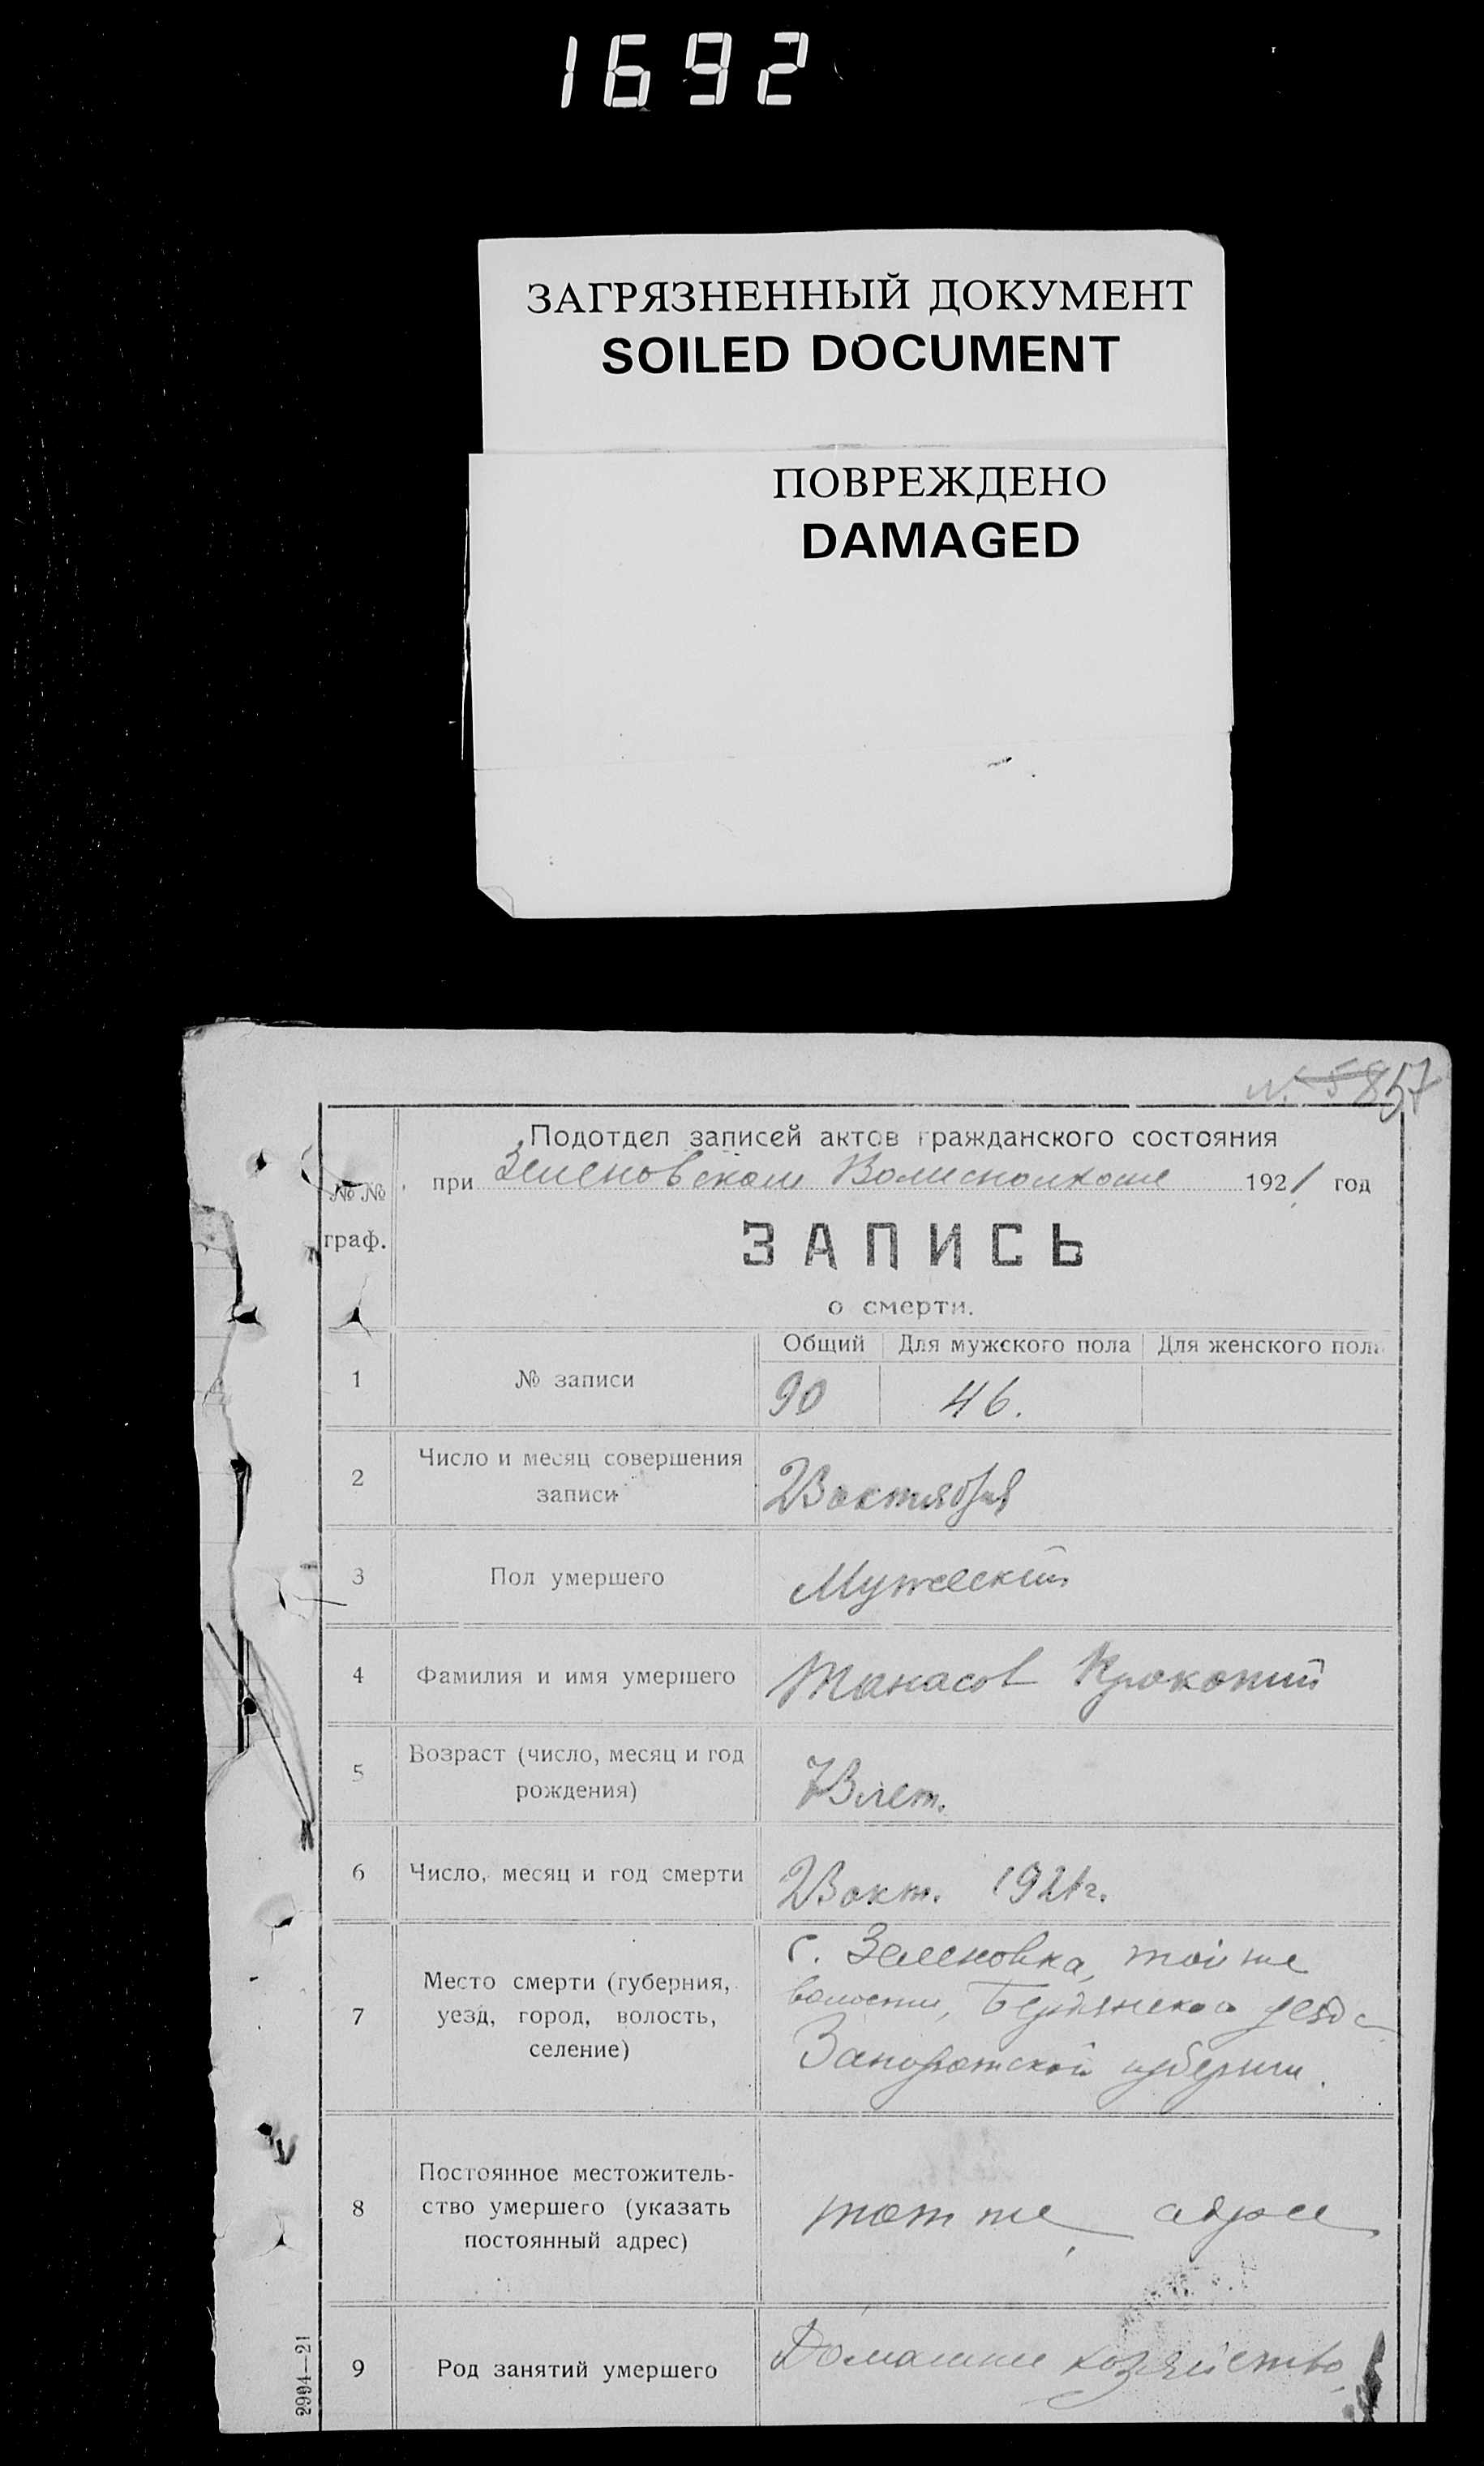 1692
ЗАГРЯЗНЕННЫЙ ДОКУМЕНТ
SOILED DOCUMENT
ПОВРЕЖДЕНО
DAMAGED
57
Подотдел записей актов гражданского состояния
№№ при Зеленовском Волисполкоме 1921 год
граф.
ЗАПИСЬ
о смерти.
Общий Для мужского пола Для женского пола
1 № записи 90 46.
2 Число и месяц совершения
записи
октября
3 Пол умершего Мужеский
4 Фамилия и имя умершего Танасов Прокопий
5 Возраст (число, месяц и год
рождения)
73 лет.
6 Число, месяц и год смерти окт. 1921 г.
7 Место смерти (губерния,
уезд, город, волость,
селение)
с. Зеленовка, той же
волости, Бердянского уезда
Запорожской губернии.
8 Постоянное местожитель-
ство умершего (указать
постоянный адрес)
тот же адрес
9 Род занятий умершего Домашнее хозяйство
2994—21